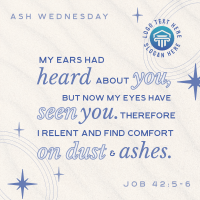 ASH WEDNESDAY
LOGO TEXT HERE
SLOGAN HERE
MY EARS HAD
heard ABOUT you,
BUT NOW MY EYES HAVE
seen you. THEREFORE
I RELENT AND FIND COMFORT
on dust & ashes.
JOB 42:5-6